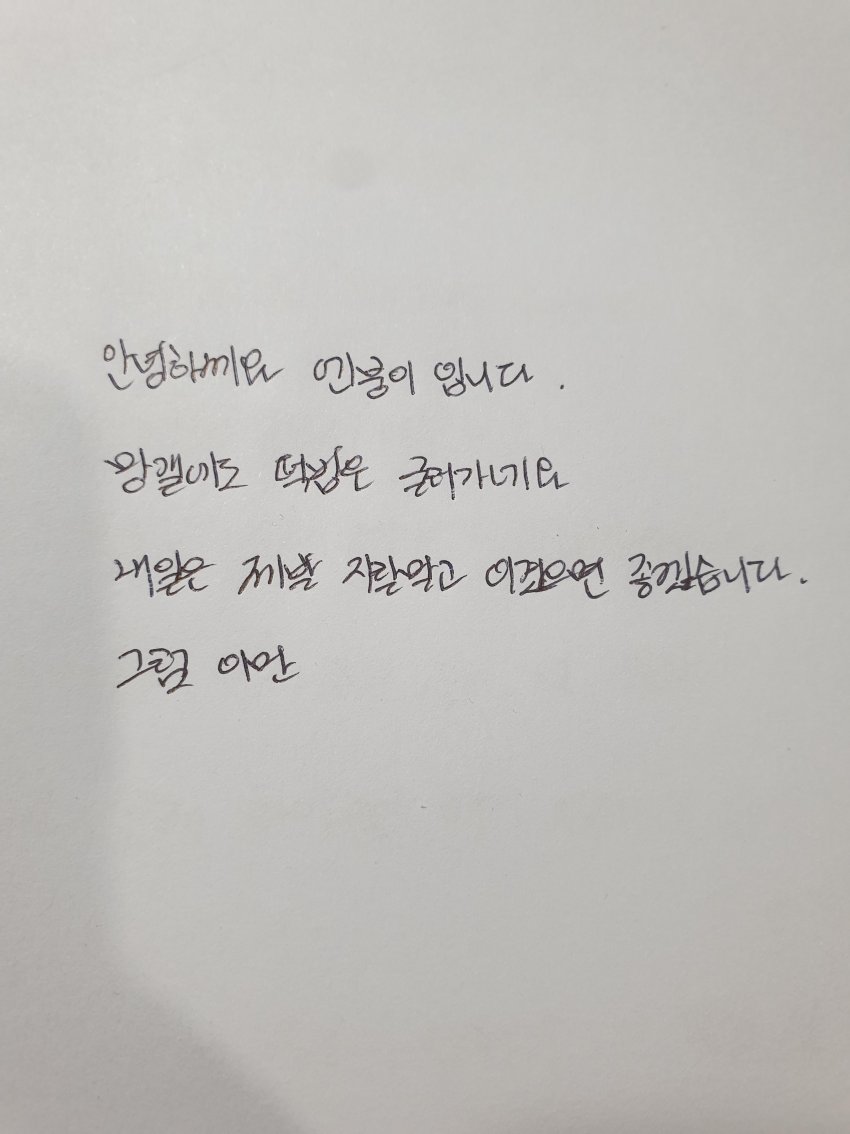 안녕하쎄요 엔붕이 입니다.
오늘도 떡밥은 굴러가네요
내일은 제발 지랄말고 이겼으면 좋겠습니다.
그럼 이만